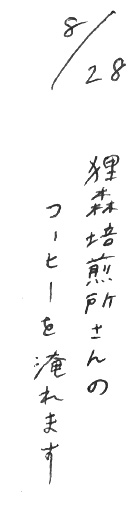 8/28
狸森焙煎所さんの
コーヒーを淹れます